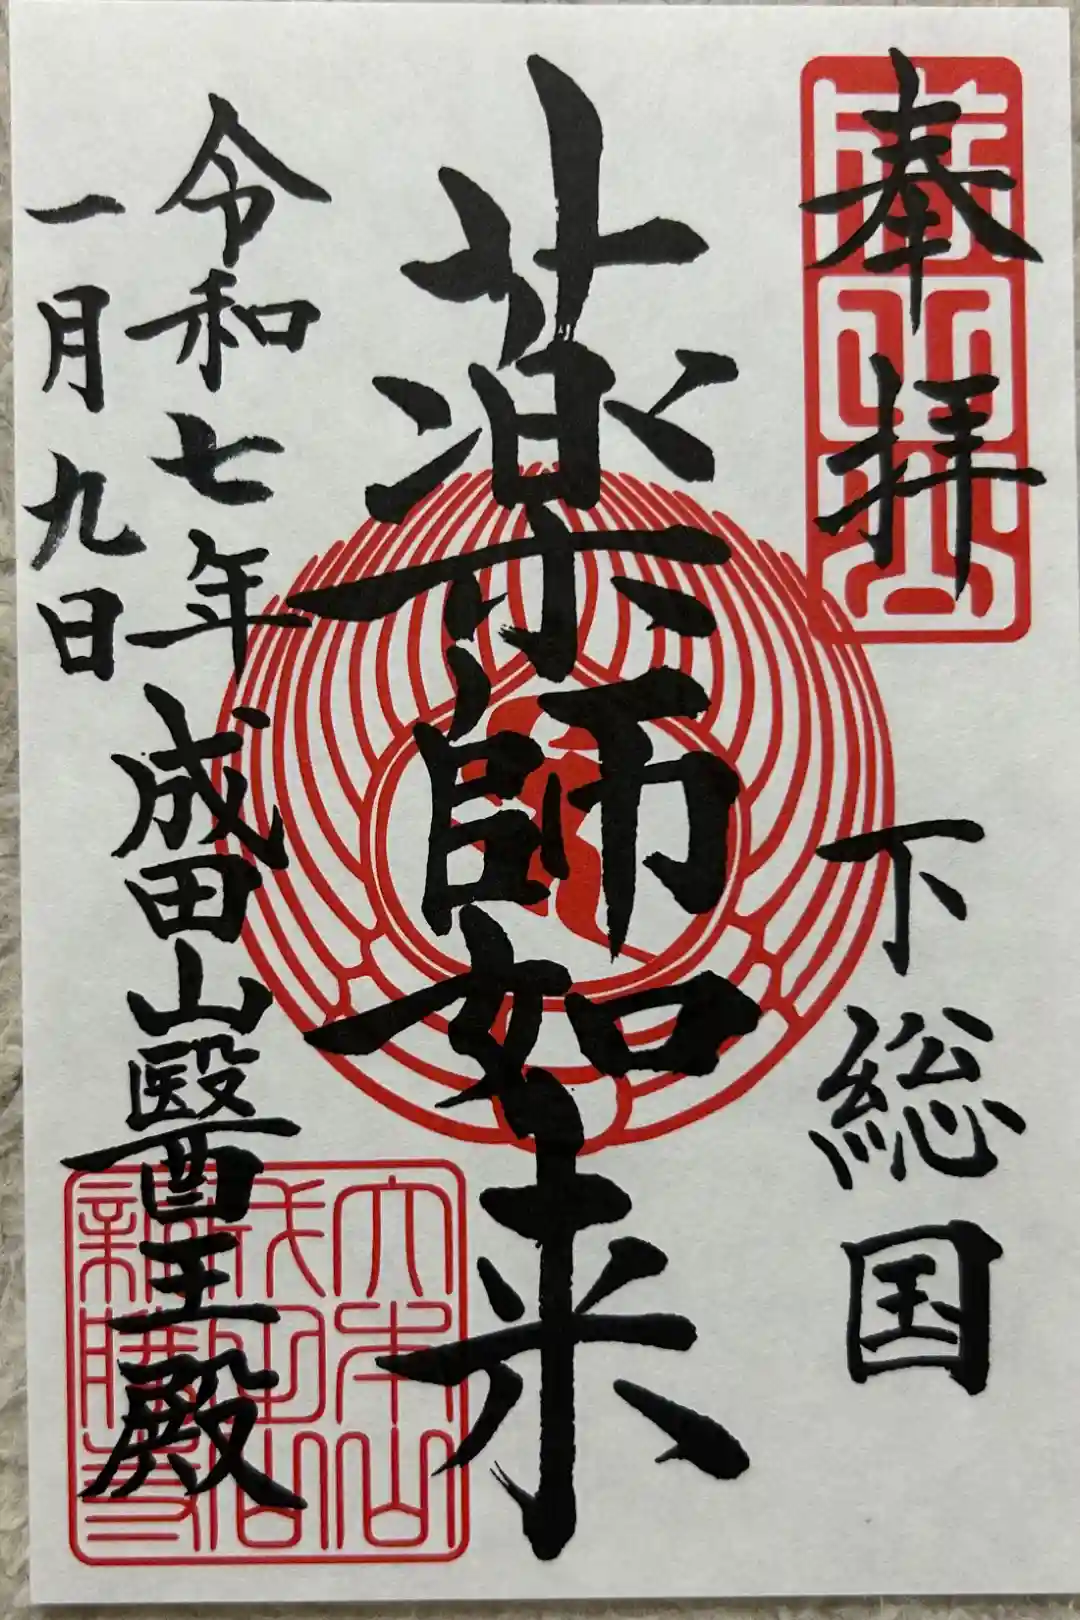 奉拝
下総国
薬師如来
令和七年
一月九日
成田山醫王殿
大本山
成田山